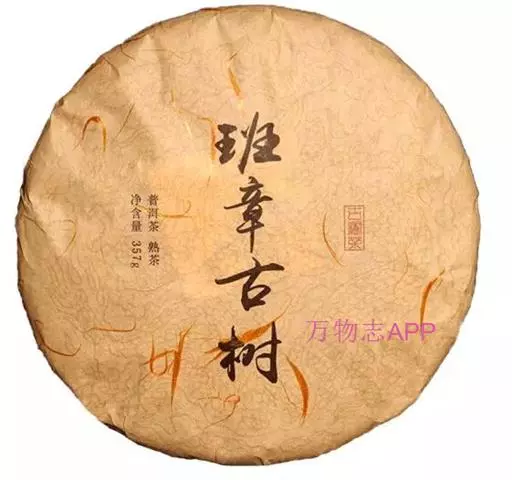 班章古树
普洱茶 熟茶
净含量 357g
万物志APP